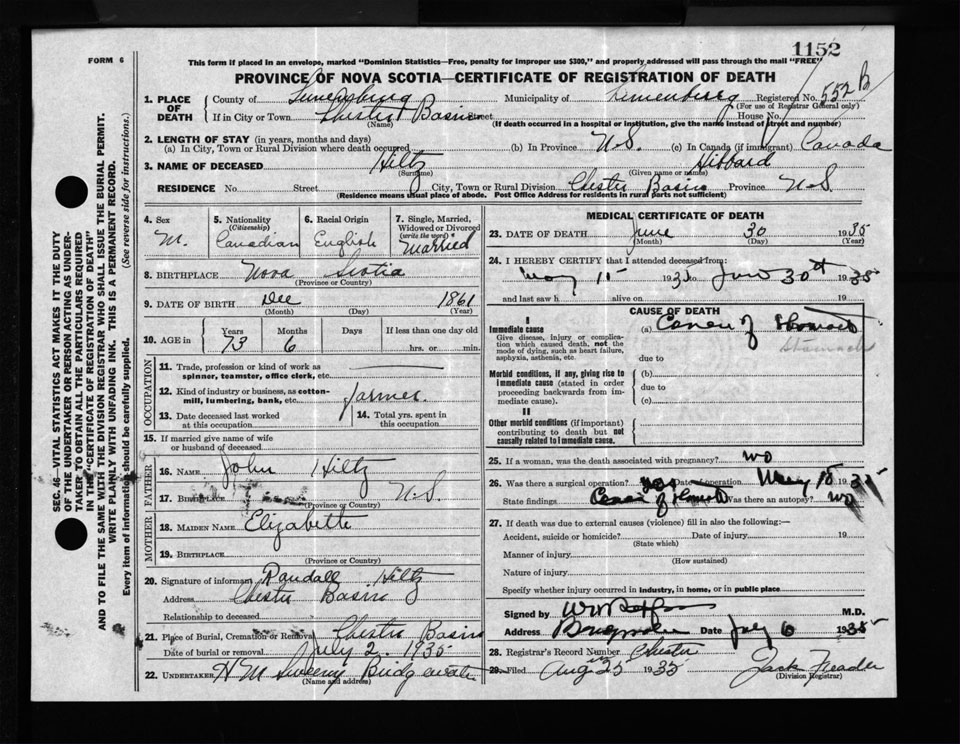 1152
FORM 6
This form if placed in an envelope, marked "Dominion Statistics—Free, penalty for improper use $300," and properly addressed will pass through the mail "FREE"
PROVINCE OF NOVA SCOTIA—CERTIFICATE OF REGISTRATION OF DEATH
1. PLACE OF DEATH County of Lunenburg Municipality of Lunenburg Registered No. 552 B
(For use of Registrar General only)
If in City or Town Chester Basin Street House No.
(Name) (If death occurred in a hospital or institution, give the name instead of street and number)
2. LENGTH OF STAY (in years, months and days)
(a) In City, Town or Rural Division where death occurred (b) In Province N.S. (c) In Canada (if immigrant) Canada
3. NAME OF DECEASED Hiltz Hibbard
(Surname) (Given name or names)
RESIDENCE No. Street City, Town or Rural Division Chester Basin Province N.S.
(Residence means usual place of abode. Post Office Address for residents in rural parts not sufficient)
4. Sex M.
5. Nationality (Citizenship) Canadian
6. Racial Origin English
7. Single, Married, Widowed or Divorced (write the word) Married
8. BIRTHPLACE Nova Scotia
(Province or Country)
9. DATE OF BIRTH Dec 1861
(Month) (Day) (Year)
10. AGE in Years 73 Months 6 Days If less than one day old hrs. or min.
OCCUPATION
11. Trade, profession or kind of work as spinner, teamster, office clerk, etc.
12. Kind of industry or business, as cotton-mill, lumbering, bank, etc. farmer.
13. Date deceased last worked at this occupation
14. Total yrs. spent in this occupation
15. If married give name of wife or husband of deceased
FATHER
16. NAME John Hiltz
17. BIRTHPLACE N.S.
(Province or Country)
MOTHER
18. MAIDEN NAME Elizabeth
19. BIRTHPLACE
(Province or Country)
20. Signature of informant Randall Hiltz
Address Chester Basin
Relationship to deceased
21. Place of Burial, Cremation or Removal Chester Basin
Date of burial or removal July 2. 1935
22. UNDERTAKER H M Sweeny Bridgewater
(Name and address)
MEDICAL CERTIFICATE OF DEATH
23. DATE OF DEATH June 30 1935
(Month) (Day) (Year)
24. I HEREBY CERTIFY that I attended deceased from
May 15 1935 to June 30th 1935
and last saw h alive on 19
CAUSE OF DEATH
I
Immediate cause
Give disease, injury or complication which caused death, not the mode of dying, such as heart failure, asphyxia, asthenia, etc.
(a) Cancer of Stomach
Stomach
due to
Morbid conditions, if any, giving rise to immediate cause (stated in order proceeding backwards from immediate cause).
(b)
due to
(c)
II
Other morbid conditions (if important) contributing to death but not causally related to immediate cause.
25. If a woman, was the death associated with pregnancy? no
26. Was there a surgical operation? yes Date of operation May 18 1935
State findings Cancer of Stomach Was there an autopsy? no
27. If death was due to external causes (violence) fill in also the following:—
Accident, suicide or homicide? Date of injury 19
(State which)
Manner of injury
(How sustained)
Nature of injury
Specify whether injury occurred in industry, in home, or in public place
Signed by M.D.
Address Bridgewater Date July 6 1935
28. Registrar's Record Number Chester
29. Filed Aug 25 1935 Jack
(Division Registrar)
SEC. 46—VITAL STATISTICS ACT MAKES IT THE DUTY
OF THE UNDERTAKER OR PERSON ACTING AS UNDER-
TAKER TO OBTAIN ALL THE PARTICULARS REQUIRED
IN THE "CERTIFICATE OF REGISTRATION OF DEATH"
AND TO FILE THE SAME WITH THE DIVISION REGISTRAR WHO SHALL ISSUE THE BURIAL PERMIT.
WRITE PLAINLY WITH UNFADING INK. THIS IS A PERMANENT RECORD.
Every item of information should be carefully supplied. (See reverse side for instructions.)